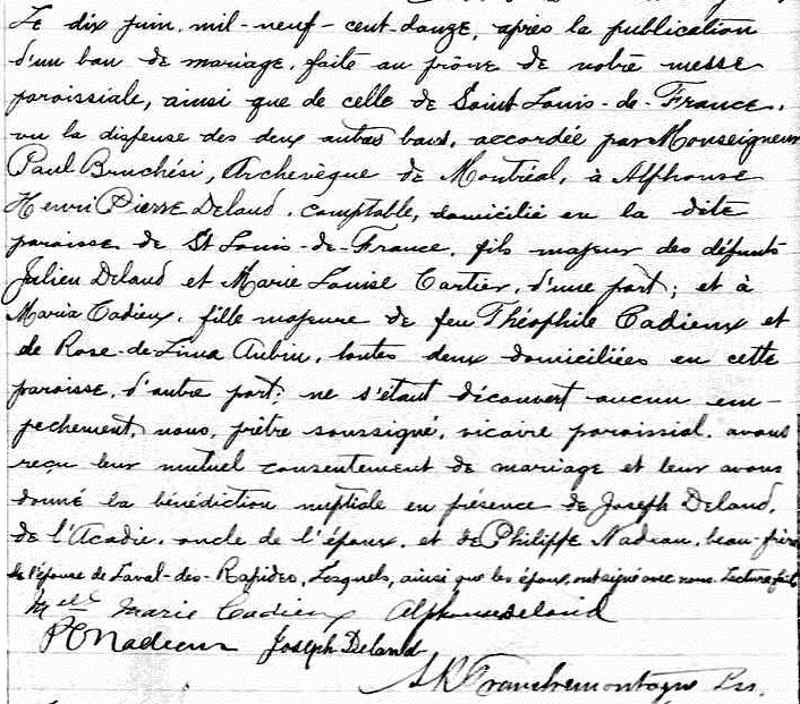 Le dix juin, mil-neuf-cent-douze, après la publication
d'un ban de mariage, faite au prône de notre messe
paroissiale, ainsi que de celle de Saint Louis-de-France,
vu la dispense des deux autres bans, accordée par Monseigneur
Paul Bruchési, Archevêque de Montréal, à Alphonse
Henri Pierre Deland, comptable, domicilié en la dite
paroisse de St Louis-de-France, fils majeur des défunts
Julien Deland et Marie Louise Cartier, d'une part; et à
Maria Cadieux, fille majeure de feu Théophile Cadieux et
de Rose-de-Lima Aubin, toutes deux domiciliées en cette
paroisse, d'autre part; ne s'étant découvert aucun em-
pechement, nous, prêtre soussigné, vicaire paroissial, avons
reçu leur mutuel consentement de mariage et leur avons
donné la bénédiction nuptiale en présence de Joseph Deland,
de l'Acadie, oncle de l'époux, et de Philippe Nadeau, beau-frère
de l'épouse de Laval-des-Rapides, Lesquels, ainsi que les époux, ont signé avec nous. Lecture faite
Melle Marie Cadieux Alphonse Deland
Joseph Deland
Franchemontagne Ptr.